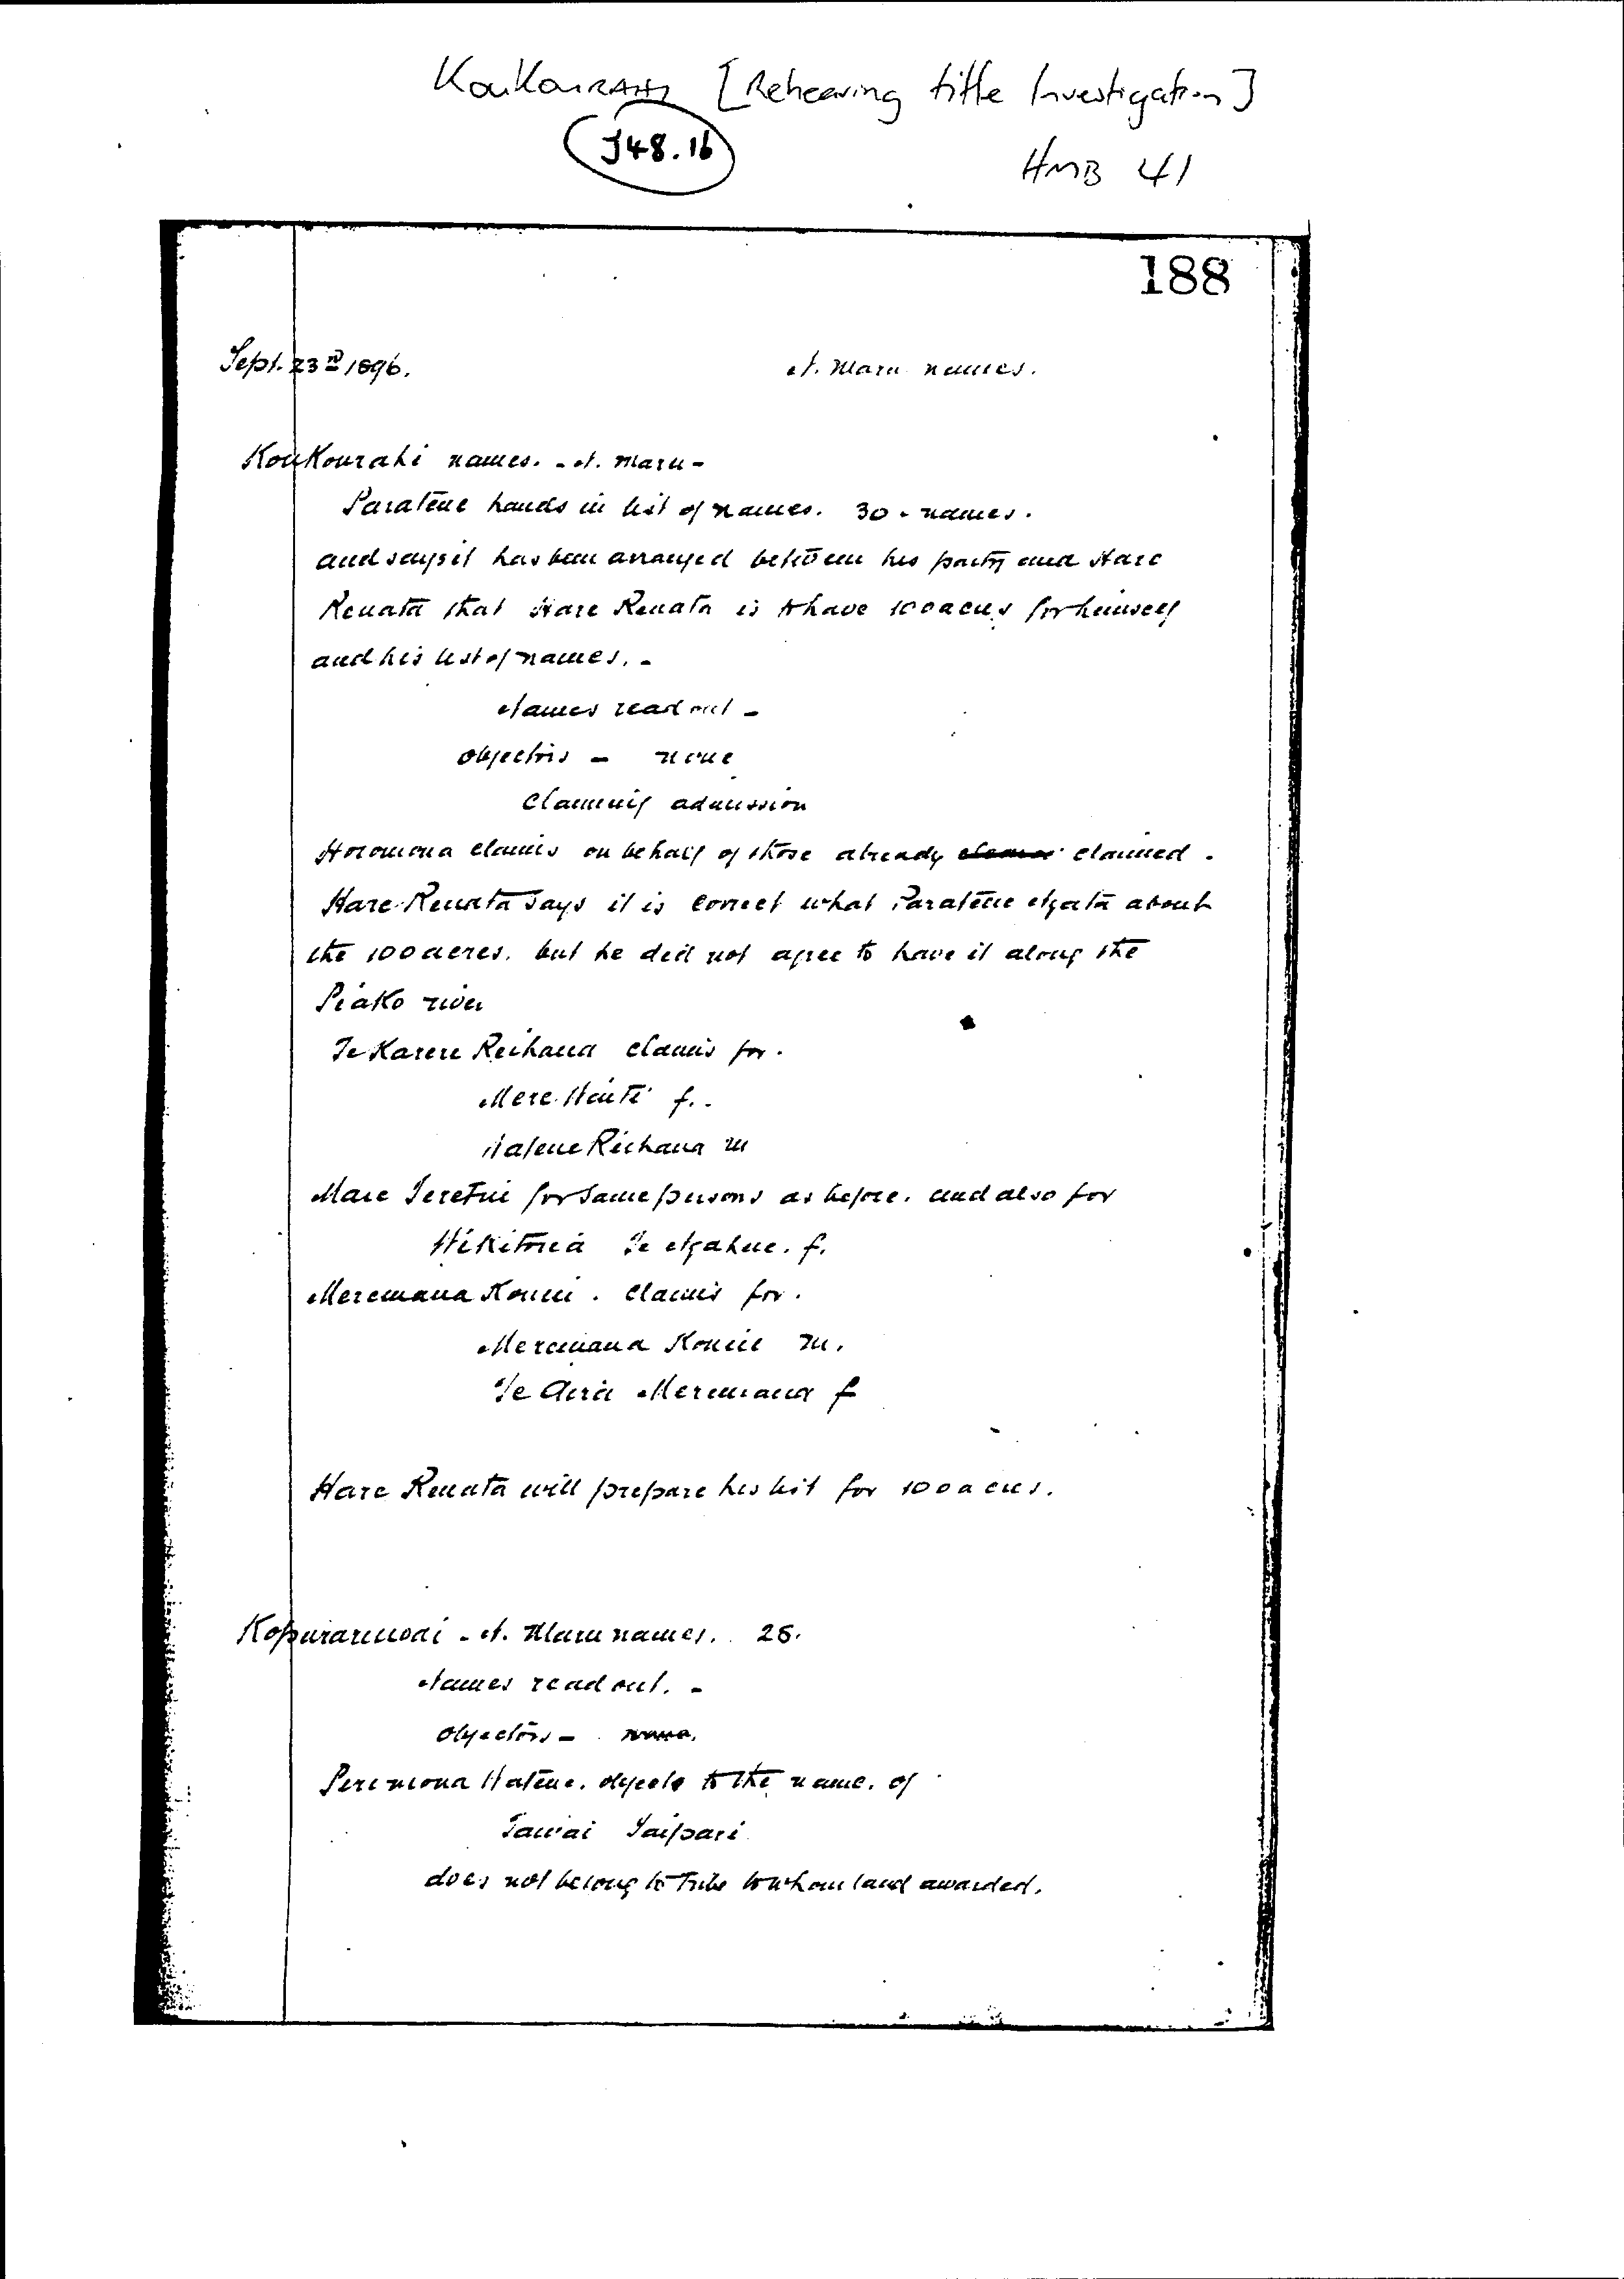 Koukourahi [Rehearing title Investigation]
J48.16
HMB 41
188
Sept. 23rd 1896.
N. Maru names.
Koukourahi names. - N. Maru -
Paratene hands in list of names. 30 - names.
and says it has been arranged between his party and Hare
Renata that Hare Renata is to have 100 acres for himself
and his list of names. -
Names read out -
Objectors - none
Claiming admission
Horomona claims on behalf of those already claimed.
Hare Renata says it is correct what Paratene Ngata about
the 100 acres. but he did not agree to have it along the
Piako river
Te Karere Reihana claims for.
Mere f.
Hatene Reihana m
for same persons as before. and also for
Wikitoria Te Ngahue. f.
Meremana Konui. claims for.
Meremana Konui m.
Te Meremana f
Hare Renata will prepare his list for 100 acres.
Kopuraruwai - N. Maru names. 28.
Names read out. -
Objectors - none.
Perimona Hatene. objects to the name. of
Tawai Taipari
does not belong to Tribe to whom land awarded.